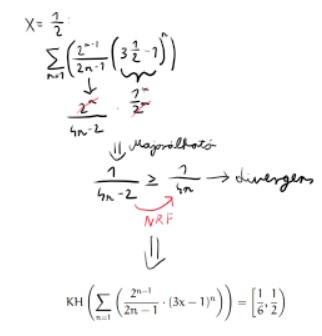 X = 1/2 :
∑_{n=1} ( 2^{n-1}/(2n-1) (3 1/2 - 1)^n )
↓
2^n/(4n-2) · 1^n/2^n
⇓ Majorálható
1/(4n-2) ≥ 1/(4n) → divergens
NRF
⇓
KH ( ∑_{n=1} ( 2^{n-1}/(2n-1) · (3x-1)^n ) ) = [1/6, 1/2)